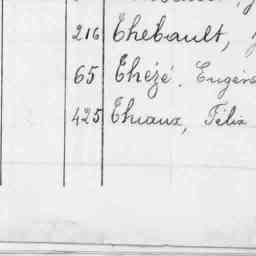 216 Thebault,
65 Thézé, Eugène
425 Thiaux, Félix